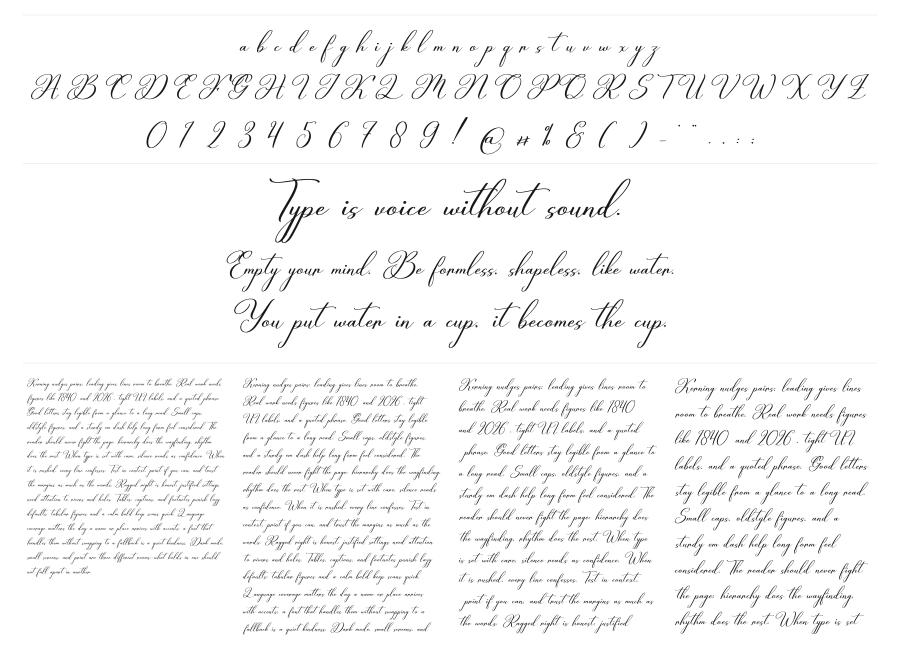 a b c d e f g h i j k l m n o p q r s t u v w x y z
A B C D E F G H I J K L M N O P Q R S T U V W X Y Z
0 1 2 3 4 5 6 7 8 9 ! @ # % & ( ) - ' " . , : ;
Type is voice without sound.
Empty your mind. Be formless, shapeless, like water.
You put water in a cup, it becomes the cup.
Kerning nudges pairs; leading gives lines room to breathe. Real work needs
figures like 1840 and 2026, tight UI labels, and a quoted phrase.
Good letters stay legible from a glance to a long read. Small caps,
oldstyle figures, and a sturdy em dash help long form feel considered. The
reader should never fight the page; hierarchy does the wayfinding, rhythm
does the rest. When type is set with care, silence reads as confidence. When
it is rushed, every line confesses. Test in context, print if you can, and trust
the margins as much as the words. Ragged right is honest; justified settings
need attention to rivers and holes. Tables, captions, and footnotes punish lazy
defaults; tabular figures and a calm bold keep scans quick. Language
coverage matters the day a name or place arrives with accents; a font that
handles them without swapping to a fallback is a quiet kindness. Dark mode,
small screens, and print are three different rooms; what holds in one should
not fall apart in another.
Kerning nudges pairs; leading gives lines room to breathe.
Real work needs figures like 1840 and 2026, tight
UI labels, and a quoted phrase. Good letters stay legible
from a glance to a long read. Small caps, oldstyle figures,
and a sturdy em dash help long form feel considered. The
reader should never fight the page; hierarchy does the wayfinding,
rhythm does the rest. When type is set with care, silence reads
as confidence. When it is rushed, every line confesses. Test in
context, print if you can, and trust the margins as much as the
words. Ragged right is honest; justified settings need attention
to rivers and holes. Tables, captions, and footnotes punish lazy
defaults; tabular figures and a calm bold keep scans quick.
Language coverage matters the day a name or place arrives
with accents; a font that handles them without swapping to a
fallback is a quiet kindness. Dark mode, small screens, and
Kerning nudges pairs; leading gives lines room to
breathe. Real work needs figures like 1840
and 2026, tight UI labels, and a quoted
phrase. Good letters stay legible from a glance to
a long read. Small caps, oldstyle figures, and a
sturdy em dash help long form feel considered. The
reader should never fight the page; hierarchy does
the wayfinding, rhythm does the rest. When type
is set with care, silence reads as confidence. When
it is rushed, every line confesses. Test in context,
print if you can, and trust the margins as much as
the words. Ragged right is honest; justified
Kerning nudges pairs; leading gives lines
room to breathe. Real work needs figures
like 1840 and 2026, tight UI
labels, and a quoted phrase. Good letters
stay legible from a glance to a long read.
Small caps, oldstyle figures, and a
sturdy em dash help long form feel
considered. The reader should never fight
the page; hierarchy does the wayfinding,
rhythm does the rest. When type is set